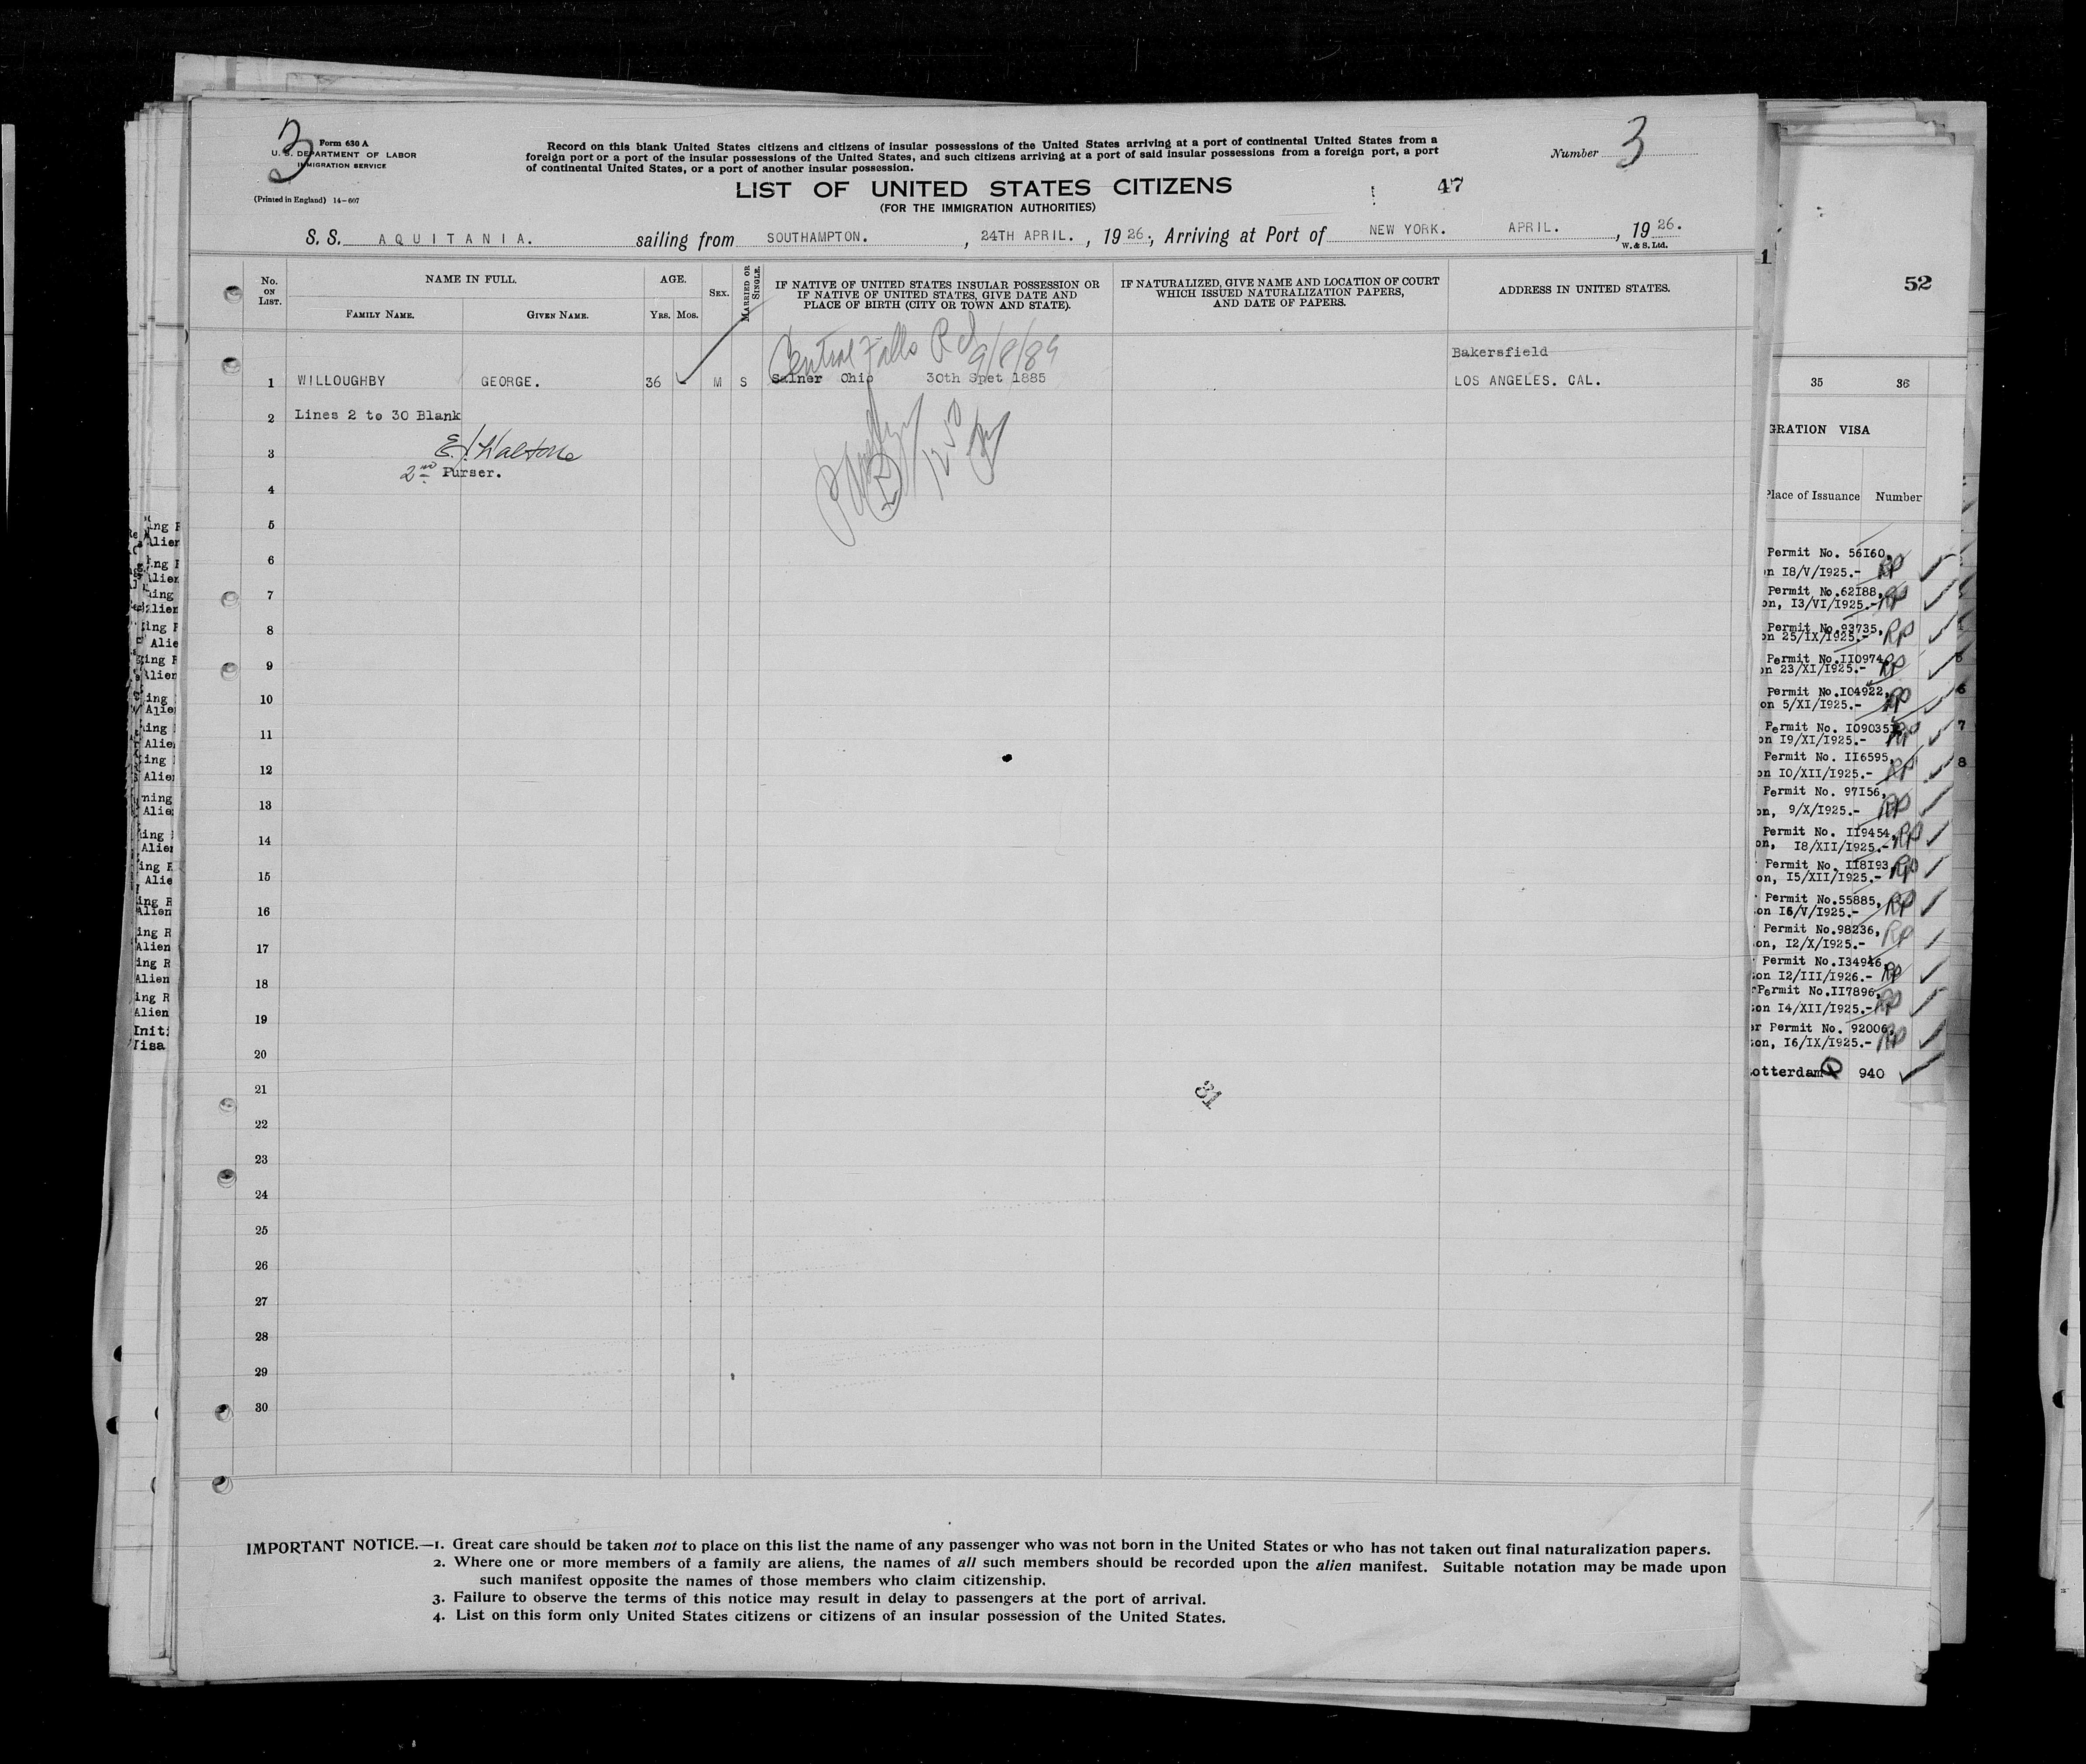 3
Form 630 A
U. S. DEPARTMENT OF LABOR
IMMIGRATION SERVICE
(Printed in England) 14-607
Record on this blank United States citizens and citizens of insular possessions of the United States arriving at a port of continental United States from a
foreign port or a port of the insular possessions of the United States, and such citizens arriving at a port of said insular possessions from a foreign port, a port
of continental United States, or a port of another insular possession.
Number 3
LIST OF UNITED STATES CITIZENS
47
(FOR THE IMMIGRATION AUTHORITIES)
S. S. AQUITANIA. sailing from SOUTHAMPTON. , 24TH APRIL. , 1926., Arriving at Port of NEW YORK. APRIL. , 1926.
W. & S. Ltd.
No. ON LIST.
NAME IN FULL.
FAMILY NAME.
GIVEN NAME.
AGE.
YRS. MOS.
SEX.
MARRIED OR SINGLE.
IF NATIVE OF UNITED STATES INSULAR POSSESSION OR
IF NATIVE OF UNITED STATES, GIVE DATE AND
PLACE OF BIRTH (CITY OR TOWN AND STATE).
IF NATURALIZED, GIVE NAME AND LOCATION OF COURT
WHICH ISSUED NATURALIZATION PAPERS,
AND DATE OF PAPERS.
ADDRESS IN UNITED STATES.
Central Falls R I 9/8/89
Bakersfield
1 WILLOUGHBY GEORGE. 36 M S Salner Ohio 30th Spet 1885 LOS ANGELES. CAL.
2 Lines 2 to 30 Blank
3
2nd Purser.
4
5
6
7
8
9
10
11
12
13
14
15
16
17
18
19
20
21
31
22
23
24
25
26
27
28
29
30
IMPORTANT NOTICE.—1. Great care should be taken not to place on this list the name of any passenger who was not born in the United States or who has not taken out final naturalization papers.
2. Where one or more members of a family are aliens, the names of all such members should be recorded upon the alien manifest. Suitable notation may be made upon
such manifest opposite the names of those members who claim citizenship.
3. Failure to observe the terms of this notice may result in delay to passengers at the port of arrival.
4. List on this form only United States citizens or citizens of an insular possession of the United States.
1
52
35 36
GRATION VISA
Place of Issuance Number
Permit No. 56I60,
on I8/V/I925.- RP
Permit No.62I88, RP
on, I3/VI/I925.-
Permit No.93735, RP
on 25/IX/I925.-
Permit No.II0974, RP
on 23/XI/I925.-
Permit No.I04922, RP
on 5/XI/I925.-
Permit No. I09035, RP
on I9/XI/I925.-
Permit No. II6595,
on I0/XII/I925.- RP
Permit No. 97I56,
on, 9/X/I925.- RP
Permit No. II9454, RP
on, I8/XII/I925.-
Permit No. II8I93, RP
on, I5/XII/I925.-
Permit No.55885, RP
on I6/V/I925.-
Permit No.98236, RP
on, I2/X/I925.-
Permit No.I34946,
on I2/III/I926.- RP
Permit No.II7896,
on I4/XII/I925.- RP
er Permit No. 92006,
on, I6/IX/I925.- RP
otterdam 940